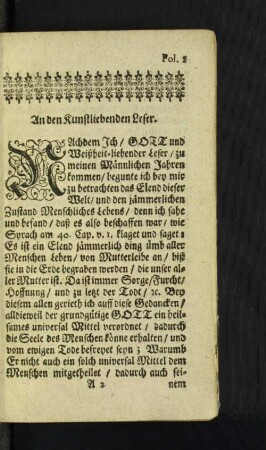 Fol. 1
An den Kunstliebenden Leser.
NAchdem Ich / GOTT und
Weißheit-liebender Leser / zu
meinen Männlichen Jahren
kommen / begunte ich bey mir
zu betrachten das Elend dieser
Welt / und den jämmerlichen
Zustand Menschliches Lebens / denn ich sahe
und befand / daß es also beschaffen war / wie
Syrach am 40. Cap. v. 1. klaget und saget :
Es ist ein Elend jämmerlich ding ümb aller
Menschen Leben / von Mutterleibe an / biß
sie in die Erde begraben werden / die unser al-
ler Mutter ist. Da ist immer Sorge / Furcht /
Hoffnung / und zu letzt der Todt / ꝛc. Bey
diesem allen gerieth ich auff diese Gedancken /
alldieweil der grundgütige GOTT ein heil-
sames universal Mittel verordnet / dadurch
die Seele des Menschen könne erhalten / und
vom ewigen Tode befreyet seyn ; Warumb
Er nicht auch ein solch universal Mittel dem
Menschen mitgetheilet / dadurch auch sei-
A 2 nem